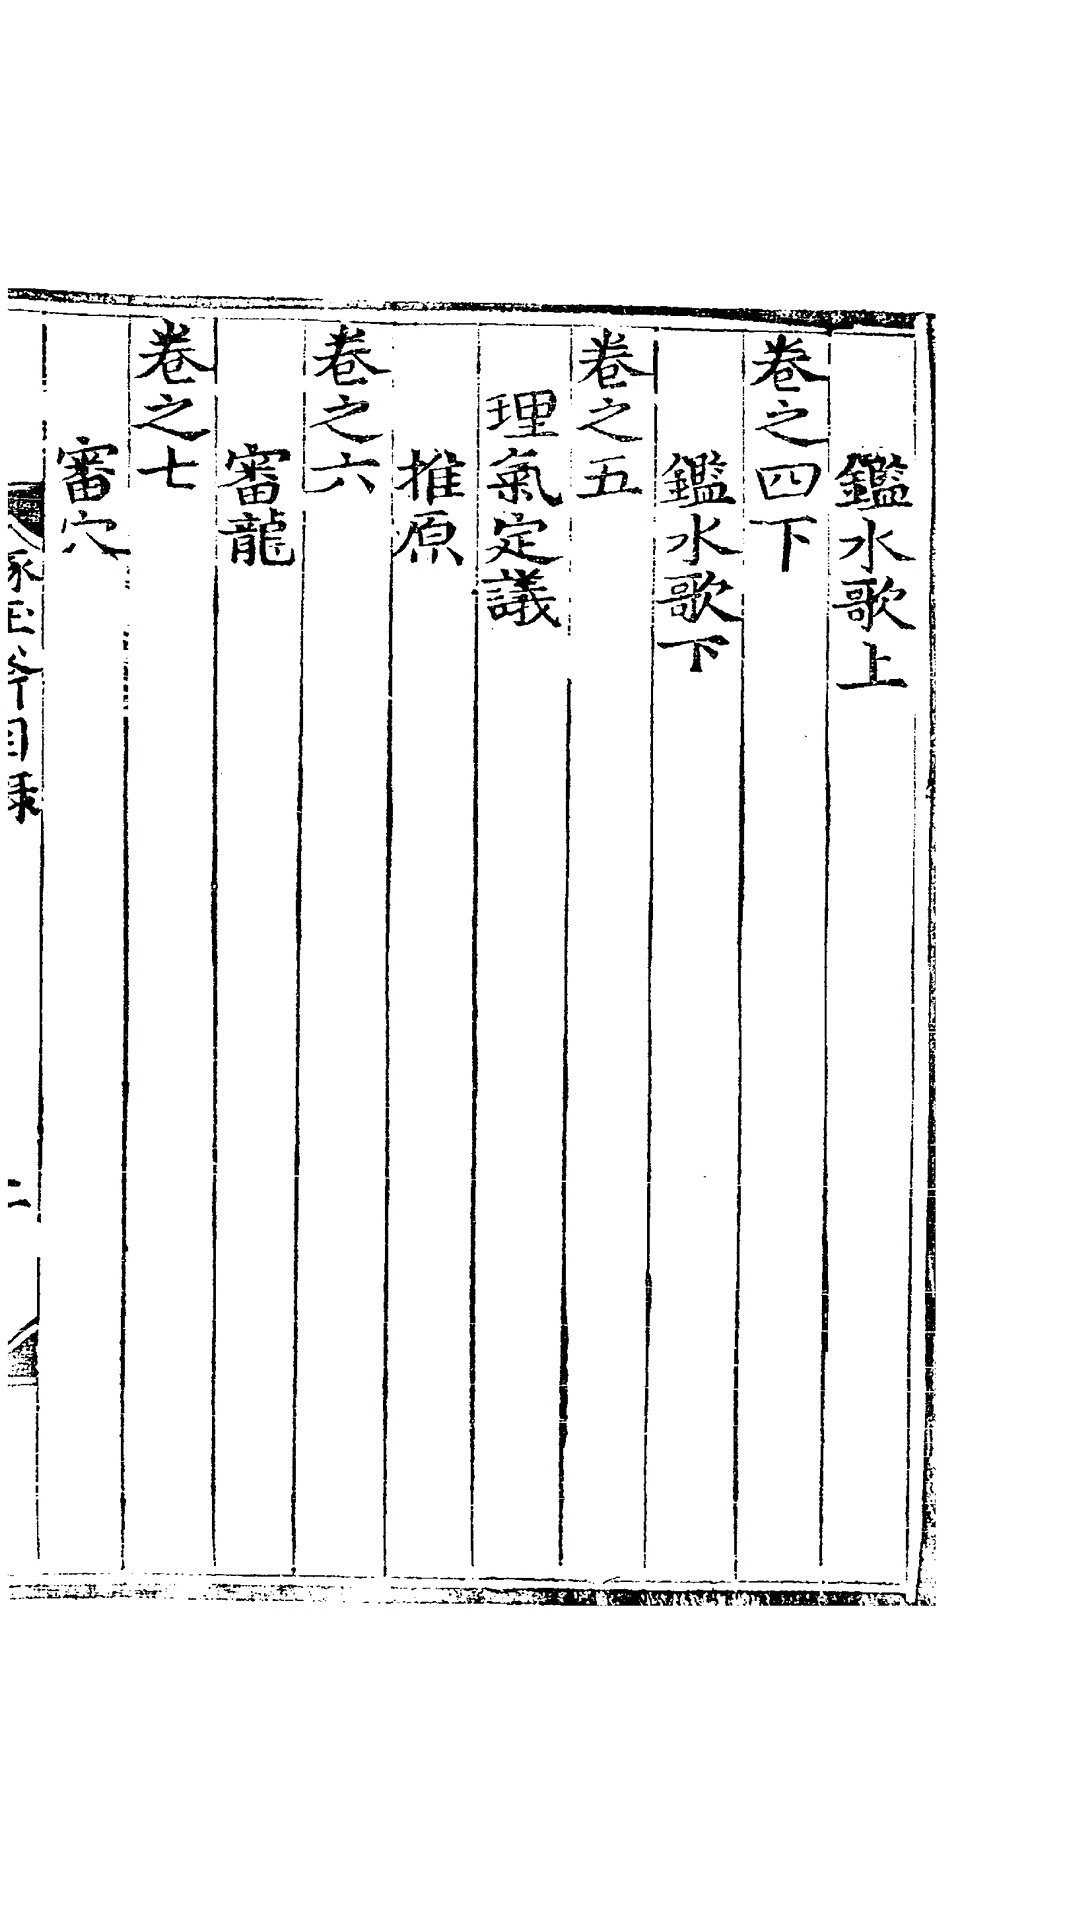 鑑水歌上
卷之四下
鑑水歌下
卷之五
理氣定議
推原
卷之六
審龍
卷之七
審穴
琢玉斧目錄